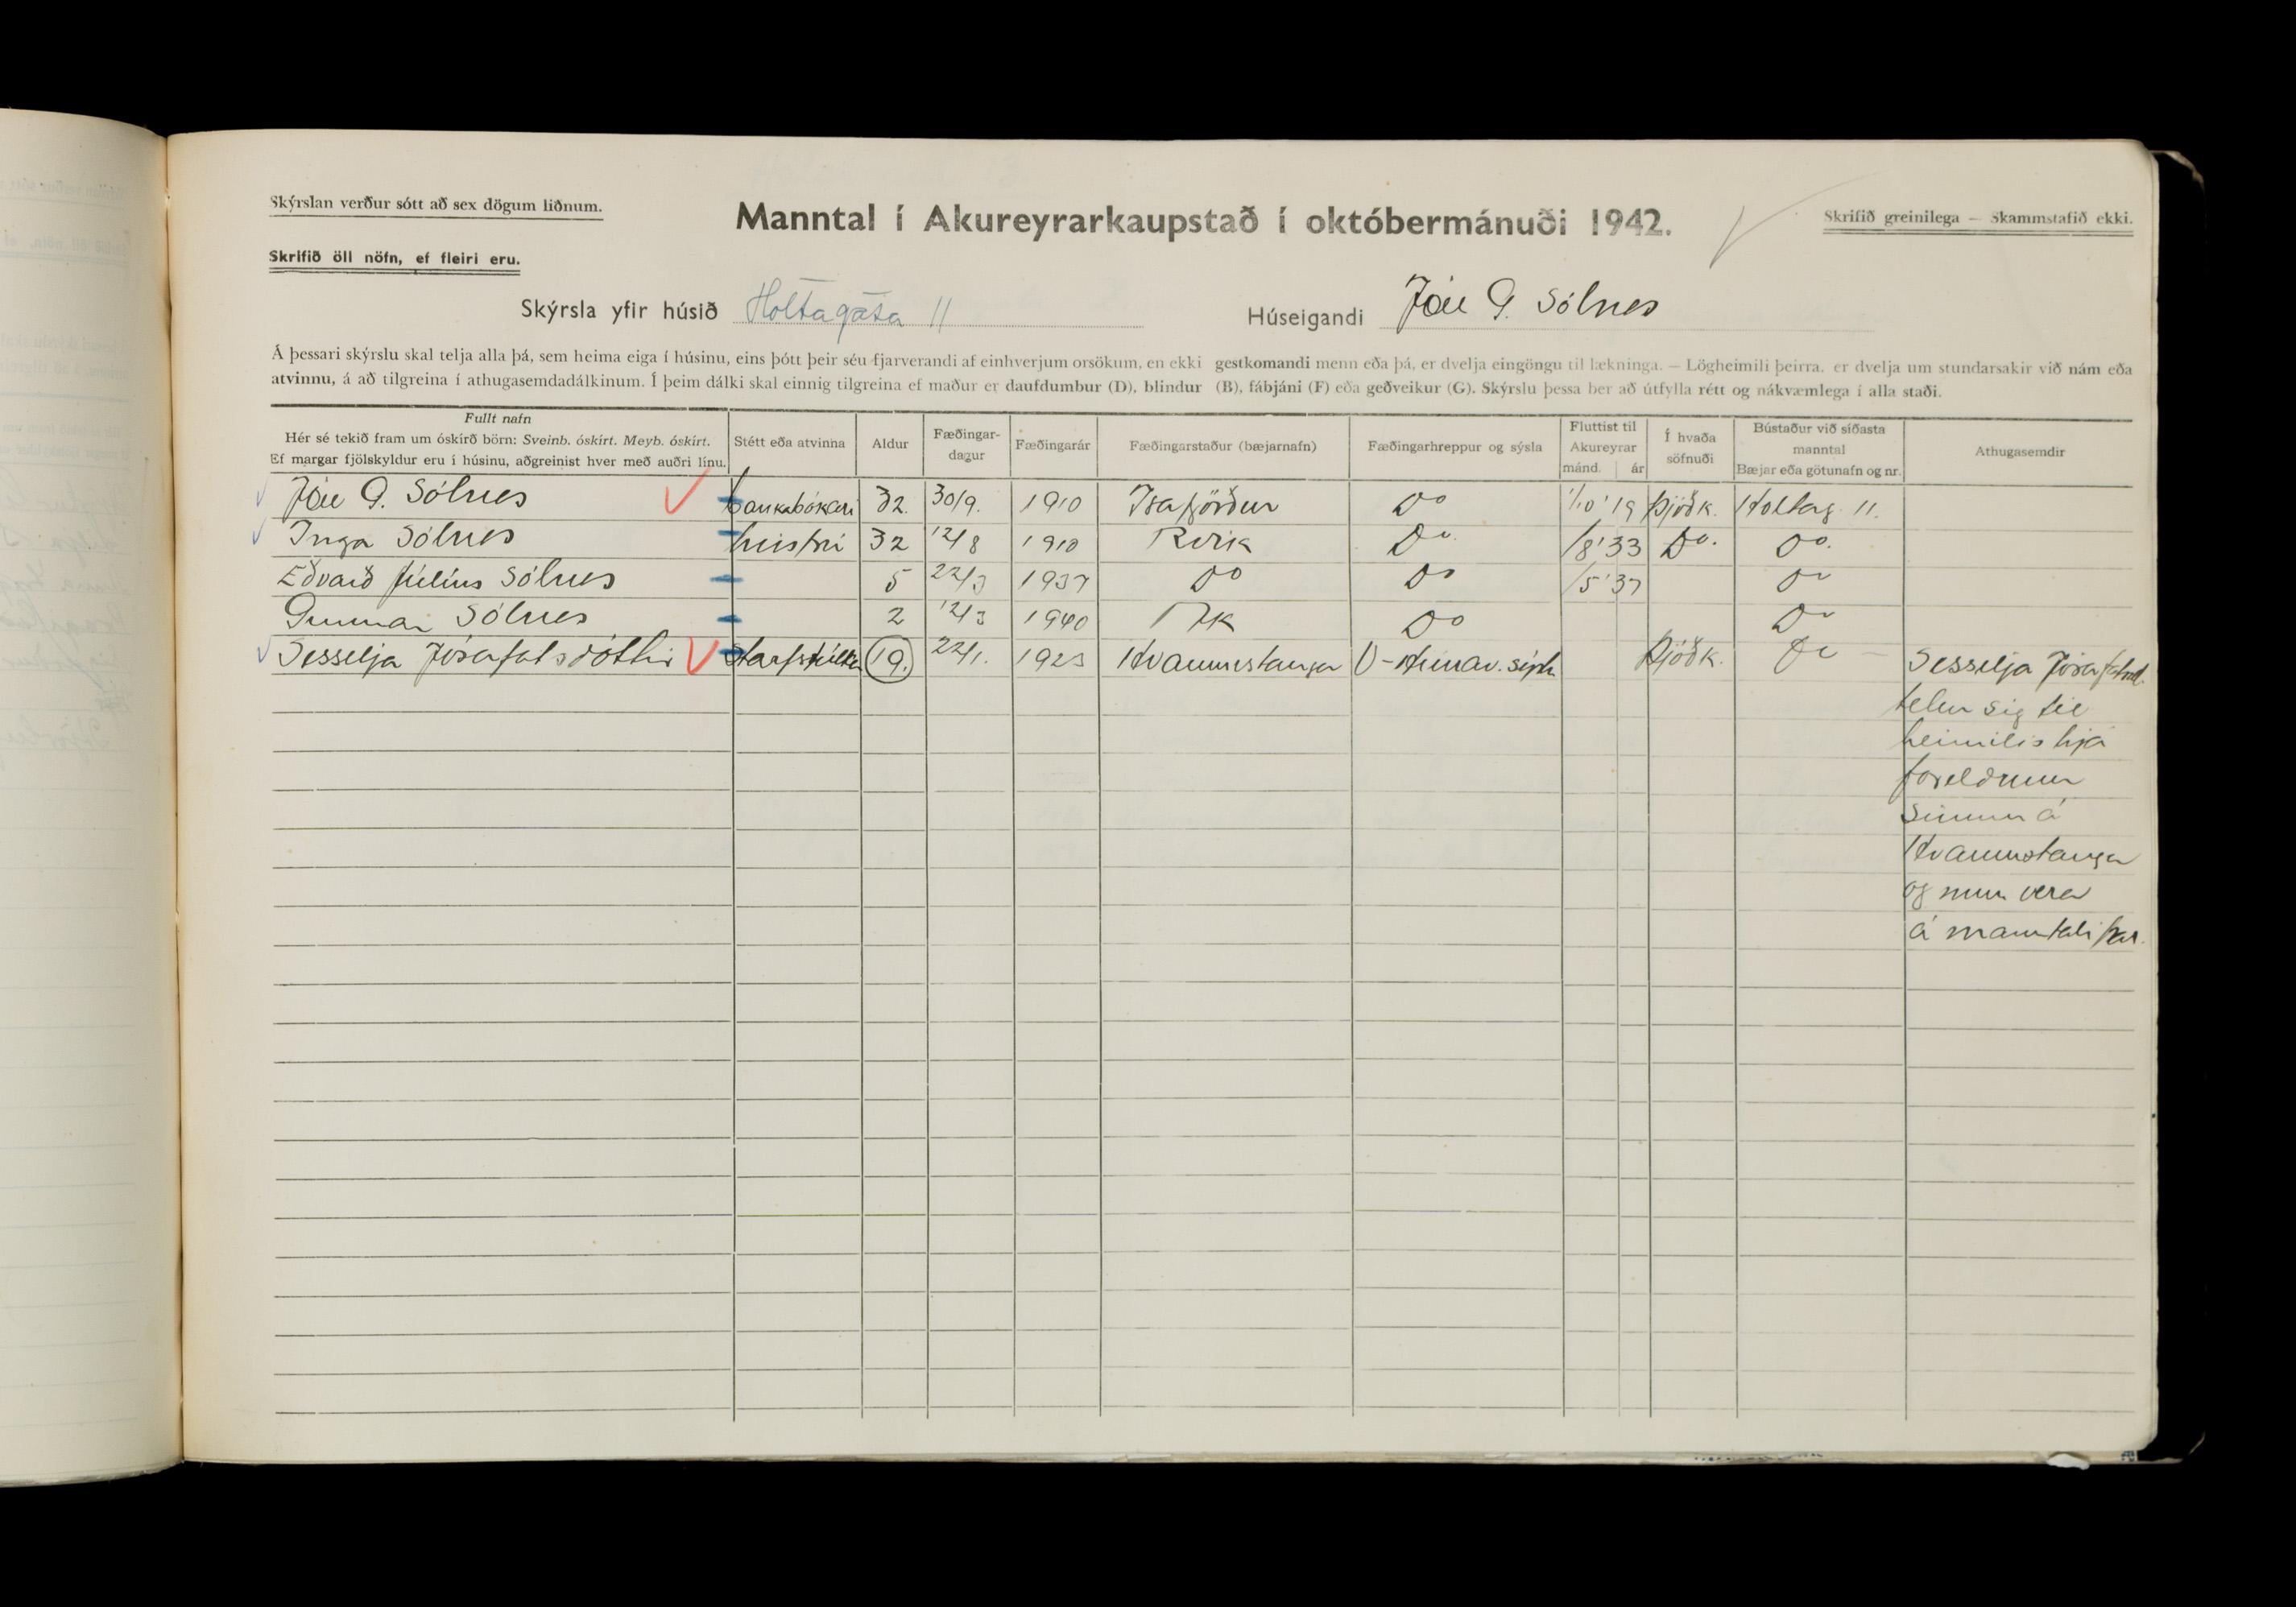 Skýrslan verður sótt að sex dögum liðnum.
Manntal í Akureyrarkaupstað í októbermánuði 1942.
Skrifið greinilega — Skammstafið ekki.
Skrifið öll nöfn, ef fleiri eru.
Skýrsla yfir húsið Holtagata 11
Húseigandi Jón G. Sólnes
Á þessari skýrslu skal telja alla þá, sem heima eiga í húsinu, eins þótt þeir séu fjarverandi af einhverjum orsökum, en ekki gestkomandi menn eða þá, er dvelja eingöngu til lækninga. — Lögheimili þeirra, er dvelja um stundarsakir við nám eða
atvinnu, á að tilgreina í athugasemdadálkinum. Í þeim dálki skal einnig tilgreina ef maður er daufdumbur (D), blindur (B), fábjáni (F) eða geðveikur (G). Skýrslu þessa ber að útfylla rétt og nákvæmlega í alla staði.
Fullt nafn
Hér sé tekið fram um óskírð börn: Sveinb. óskírt. Meyb. óskírt.
Ef margar fjölskyldur eru í húsinu, aðgreinist hver með auðri línu.
Stétt eða atvinna
Aldur
Fæðingar-
dagur
Fæðingarár
Fæðingarstaður (bæjarnafn)
Fæðingarhreppur og sýsla
Fluttist til
Akureyrar
mánd. ár
Í hvaða
söfnuði
Bústaður við síðasta
manntal
Bæjar eða götunafn og nr.
Athugasemdir
Jón G. Sólnes bankabókari 32. 30/9. 1910 Ísafjörður Do 1/10 '19 Þjóðk. Holtag. 11.
Inga Sólnes húsfrú 32 12/8 1910 Rvík Do. /8 '33 Do. Do.
Eðvarð Júlíus Sólnes 5 22/3 1937 Do Do /5 '37 Do
Gunnar Sólnes 2 12/3 1940 Ak Do Do
Sesselja Jósafatsdóttir starfstúlka 19. 22/1. 1923 Hvammstanga V-Húnav.sýslu Þjóðk. Do — Sesselja Jósafatsd.
telur sig til
heimilis hjá
foreldrum
sínum á
Hvammstanga
og mun vera
á manntali þar.